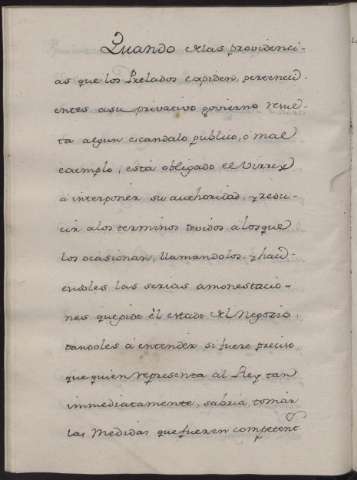 Quando delas providenci-
as que los Prelados expiden, pertenci-
entes asu privativo govierno resul-
ta algun escandalo publico, o mal
exemplo, está obligado el Virrey
à interponer su authoridad, y redu-
cir alos terminos devidos alos que
los ocasionan, llamandolos, y haci-
endoles las serias amonestacio-
nes que pide él estado del Negozio,
dandoles à entender si fuere preciso
que quien representa al Rey tan
immediatamente, sabrà tomar
las Medidas que fueren competent